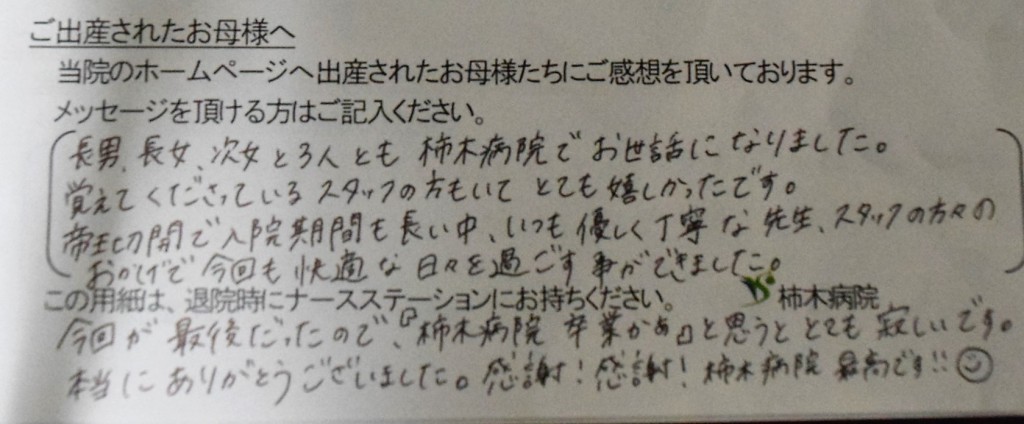 ご出産されたお母様へ
当院のホームページへ出産されたお母様たちにご感想を頂いております。
メッセージを頂ける方はご記入ください。
長男、長女、次女と3人とも 柿木病院でお世話になりました。
覚えてくださっているスタッフの方もいて とても嬉しかったです。
帝王切開で入院期間も長い中、いつも優しく丁寧な先生、スタッフの方々の
おかげで 今回も快適な日々を過ごす事ができました。
この用紙は、退院時にナースステーションにお持ちください。 柿木病院
今回が最後だったので、『柿木病院 卒業かぁ』と思うととても寂しいです。
本当にありがとうございました。感謝!感謝!柿木病院 最高です!!